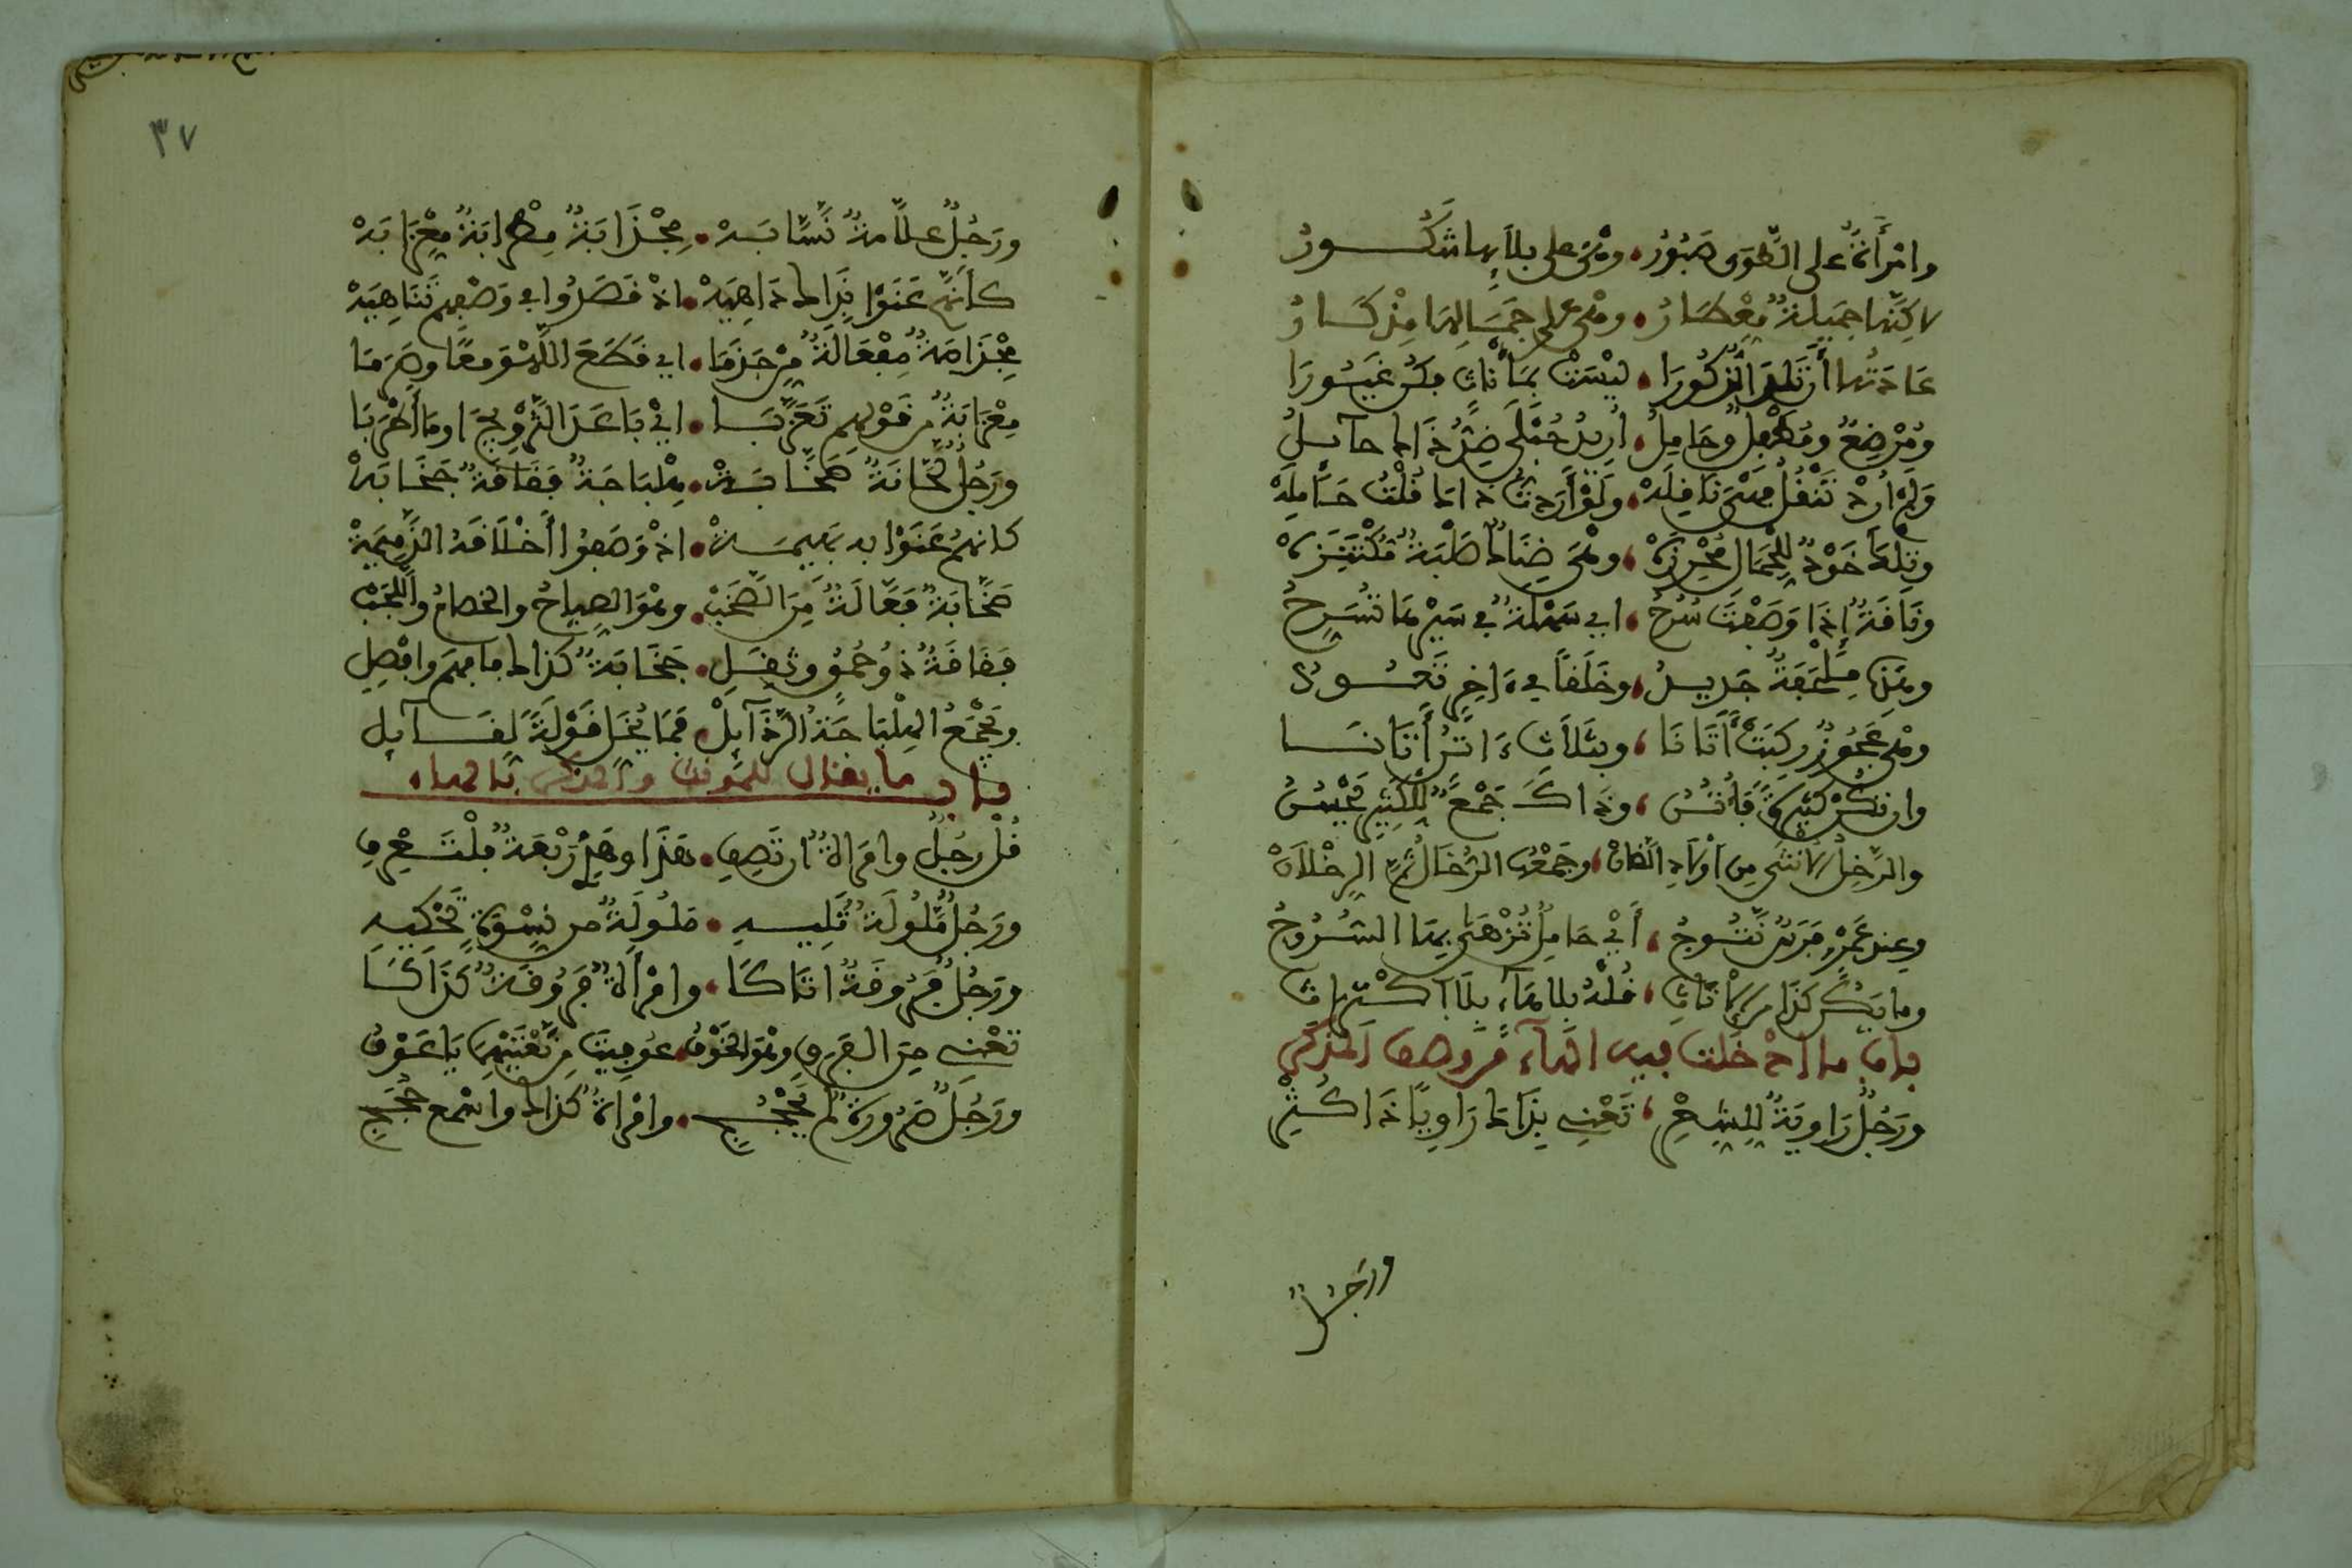 وامْرَأَةٌ على الطَّوَى صَبُورُ، وهْيَ على بلَايِها شَكُورُ
لاكِنَّها جَمِيلةٌ مِعْطَارُ، وهْيَ على جَمَالِهَا مِذْكَارُ
عَادَتُها أَنْ تَلِدَ الذُّكُورَا، ليْسَتْ بِمِأْنَاثٍ فكُنْ غَيُورَا
ومُرْضِعٌ ومُطْفِلٌ وحَامِلُ، أُرِيدُ حُبْلَى ضِدُّ ذَاك حآيلُ
وَلَمْ أُرِدْ تَنْقُلُ فهْيَ نَاقِلَهْ، وَلَوْ أَرَدتُ ذاكَ قُلْتُ حَامِلَهْ
وتِلْكَ خَوْدٌ لِلْجَمَالِ مُحْرِزَهْ، وهْيَ ضِنَاكٌ صَلْبَةٌ مُكْتَنِزَهْ
ونَاقَةٌ إذَا وَصَفْتَ سُرُحُ، اي سَهْلةٌ في سَيْرِهَا تُسَرِّحُ
وهَذِهِ مِلْحَفَةٌ جَدِيدُ، وخَلَقاً في ءَاخِرٍ تَعُودُ
وهْيَ عَجُوزٌ رَكِبَتْ أَتَانَا، وبثَلَاثٍ ءَاتُنٍ أَتَانَا
وإن تكُنْ كثِيرَةً فأُتُنُ، وذَاكَ جَمْعٌ لِلْكَثِيرِ يَحْسُنُ
والرَّخِلُ الانثى مِن اوْلَادِ الضَّانْ، وجَمْعُهُ الرُّخَالُ ثُمَّ الرِّخْلَانْ
وعِندَ عَمْرٍو فَرَسٌ نَتُوجُ، أَيْ حَامِلٌ تُزْهَى بِهَا السُّرُوجُ
وما يَكُنْ كذَا مِن الانَاثِ، فقُلْهُ بلا هَآءٍ بِلَا اكْتِرَاثِ
باب ما ادْخَلت فيه الهآءَ من وصف المذكر
ورَجُلٌ رَاوِيَةٌ لِلشِّعْرِ، تَعْنِي بِذَاكَ رَاوِياً ذَا كُثْرِ
ورَجُلٌ
٣٧
ورَجُلٌ علَّامَةٌ نَسَّابَهْ، مِجْذَامَةٌ مِطْرَابَةٌ مِعْزَابَهْ
كأَنَّهُمْ عَنَوْا بِذَاكَ دَاهِيَهْ، اذْ قَصَدُوا في وَصْفِهِمْ تَنَاهِيَهْ
مِجْذَامَةٌ مِفْعَالَةٌ مِنْ جَذَمَا، اي قَطَعَ اللَّهْوَ معًا وصَرَمَا
مِعْزَابَةٌ مِن قَوْلِهِمْ تَعَزَّبَا، ايْ بَاعَدَ التَّزْوِيجَ او مَا أَطْرَبَا
ورَجُلٌ لَحَّانَةٌ صَخَّابَهْ، هِلْبَاجَةٌ فَقَاقَةٌ جَخَابَهْ
كانهمُ عَنَوْا به بَهِيمَهْ، اذْ وَصَفُوا أَخْلَاقَهُ الذَّمِيمَهْ
صَخَّابَةٌ فَعَّالَةٌ مِنَ الصَّخَبْ، وهْوَ الصِّيَاحُ والخصَامُ واللَّجَبْ
فَقَاقَةٌ ذو حُمُقٍ وثِقَلِ، جَخَابَةٌ كذاك فافْهَمْ وافْصِلِ
وتَجْمَعُ الهِلْبَاجَةُ الرَّذَآيِلْ، فَمَا يُخَلِّ قَوْلَةً لِقَآيِلِ
باب ما يقال للمؤنث والمذكر بالهاء
قُلْ رَجُلٌ وامرَاةٌ ان تَصِفِ، هَذَا وهَذِي رَبْعَةٌ فلْتَعْرِفِ
ورَجُلٌ مَلُولَةٌ تَلِيهِ، مَلُولَةٌ من نِسْوَةٍ تَحْكِيهِ
ورَجُلٌ فَرُوقَةٌ اتَاكَا، وامْرَأَةٌ فَرُوقَةٌ كَذَاكَا
تَعْنِي مِنَ الفَرَقِ وهْوَ الخَوْفُ، عُوفِيتَ مِن تَعْنَتِهِمَا يَا عَوْفُ
ورَجُلٌ صَرُورَةٌ لَمْ يَحْجُجِ، وامْرَاةٌ كذاك واسْمَعْ حُجَجِ